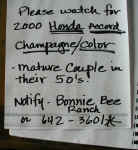 Please watch for
2000 Honda Accord
Champagne/color
- Mature Couple in
their 50's.
Notify - Bonnie Bee
Ranch
or 642-3601